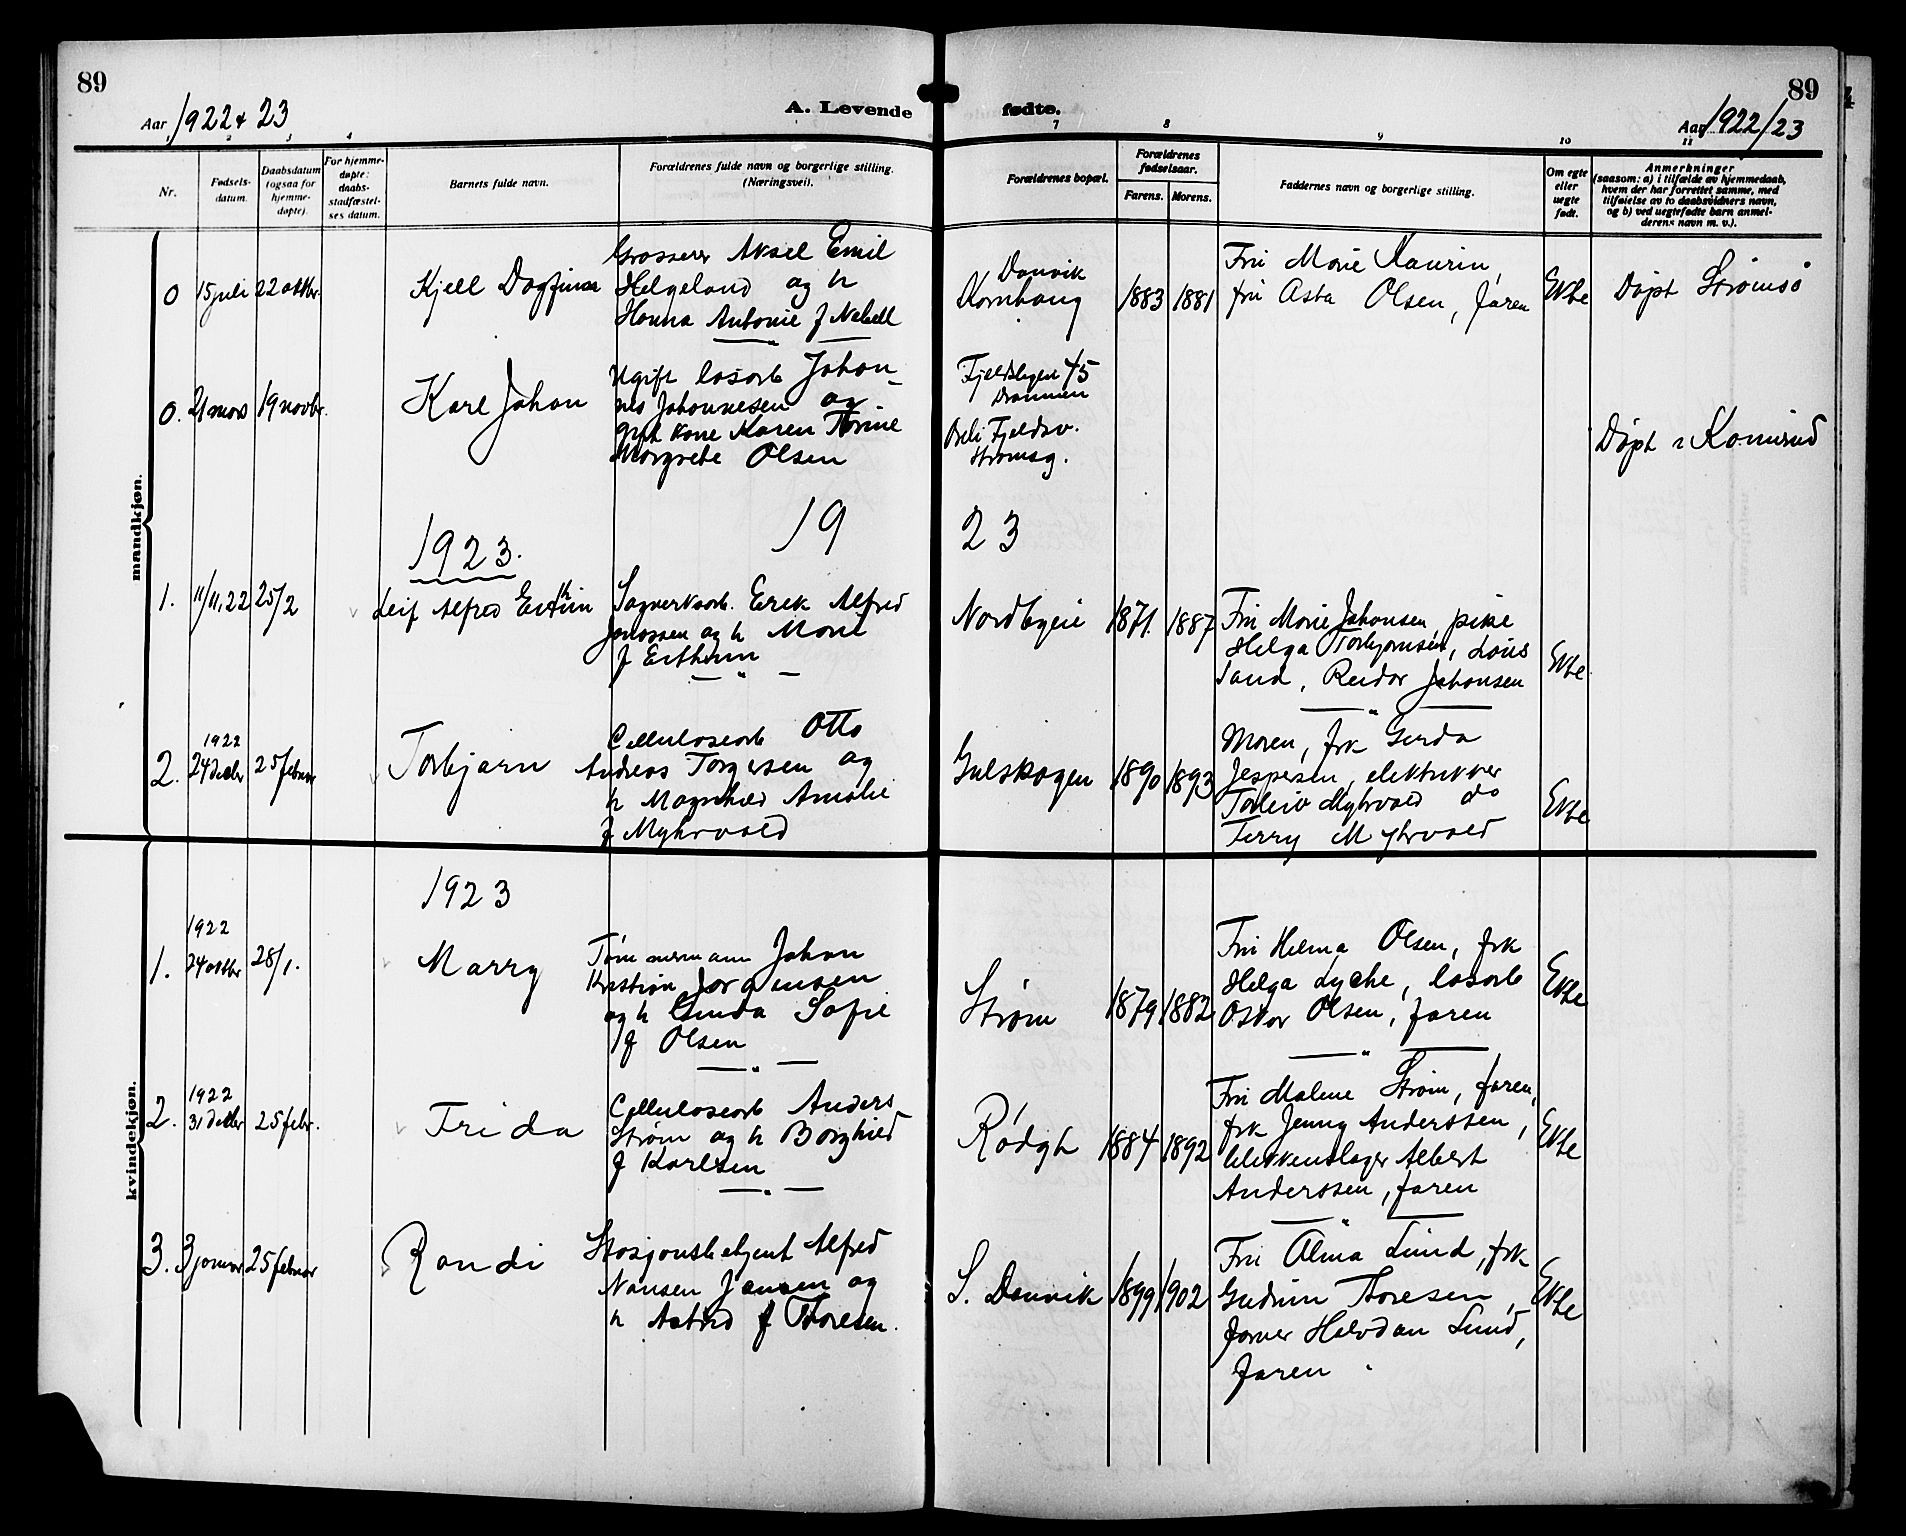 89
89
Aar 1922 & 23
A. Levende fødte.
Aar 1922/23
1 2 3 4 7 8 9 10 11
Nr.
Fødsels-
datum.
Daabsdatum
(ogsaa for
hjemme-
døpte).
For hjemme-
døpte:
daabs-
stadfæstel-
ses datum.
Barnets fulde navn.
Forældrenes fulde navn og borgerlige stilling.
(Næringsvei).
Forældrenes bopæl.
Forældrenes
fødselsaar.
Farens. Morens.
Faddernes navn og borgerlige stilling.
Om egte
eller
uegte
født.
Anmerkninger
(saasom: a) i tilfælde av hjemmedaab,
hvem der har forrettet samme, med
tilføielse av to daabsvidners navn,
og b) ved uegtefødte barn anmel-
derens navn m. v.).
mandkjøn.
0 15 juli 22 oktbr. Kjell Dagfinn
Grosserer Aksel Emil
Helgeland og h
Hanna Antonie f
Danvik
Kornhaug
1883 1881
Fru Marie Kaurin,
fru Asta Olsen, faren
Ekte
Døpt Strømsø
0. 21 mars 19 novbr. Karl Johan
Ugift løsarb Johan-
nes Johannesen og
gift kone Karen Thrine
Margrete Olsen
45
Drammen
Fjeldsv.
Strømsg.
Døpt i Konnerud
1923.
19 23
1. 11/11.22 25/2 Leif Alfred
Sagverksarb. Erik Alfred
og h Marie
f
Nordbyeie
1871. 1887
Fru Marie Johansen, pike
Helga Torbjørnsen, Louis
Sand, Reidar Johansen
Ekte
2. 1922
24 decbr 25 februar Torbjørn
Cellulosearb Otto
Andreas Torgersen og
h Magnhild Amalie
f Myhrvold
Gulskogen
1890 1893
Moren, frk Gerda
Jespersen, elektriker
Torleiv Myhrvold do
Ferry Myhrvold
Ekte
kvindekjøn.
1923
1. 1922
24 oktbr 28/1. Marry
Tømmermann Johan
Kristian Jørgensen
og h Gunda Sofie
f Olsen
Strøm
1879 1882
Fru Helma Olsen, frk
Helga Lyche, løsarb
Oskar Olsen, faren
Ekte
2. 1922
31 decbr 25 febr. Frida
Cellulosearb Anders
Strøm og h Borghild
f Karlsen
Rødgt
1884 1892
Fru Malene Strøm, faren,
frk Jenny Anderssen,
blikkenslager Albert
Anderssen, faren
Ekte
3. 3 januar 25 februar Randi
Stasjonsbetjent Alfred
Nansen Jansen og
h Astrid f Thoresen.
S. Danvik
1899 1902
Fru Alma Lund, frk
Gudrun Thoresen,
former Halvdan Lund,
faren
Ekte